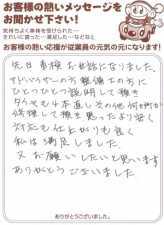 お客様の熱いメッセージを
お聞かせ下さい!
気持ちよく車検を受けられた…
きれいに直った…満足した…などなど
お客様の熱い応援が従業員の元気の元になります!
先日車検でお世話になりました。
アドバイザーの方、整備士の方に
ひとつひとつ説明して頂き
タイヤも4本直しその他何か所か
修理して頂き思ったより安く
対応も仕上がりも良く
私は満足しました。
又お願いしたいと思います
ありがとうございました
ありがとうございました。